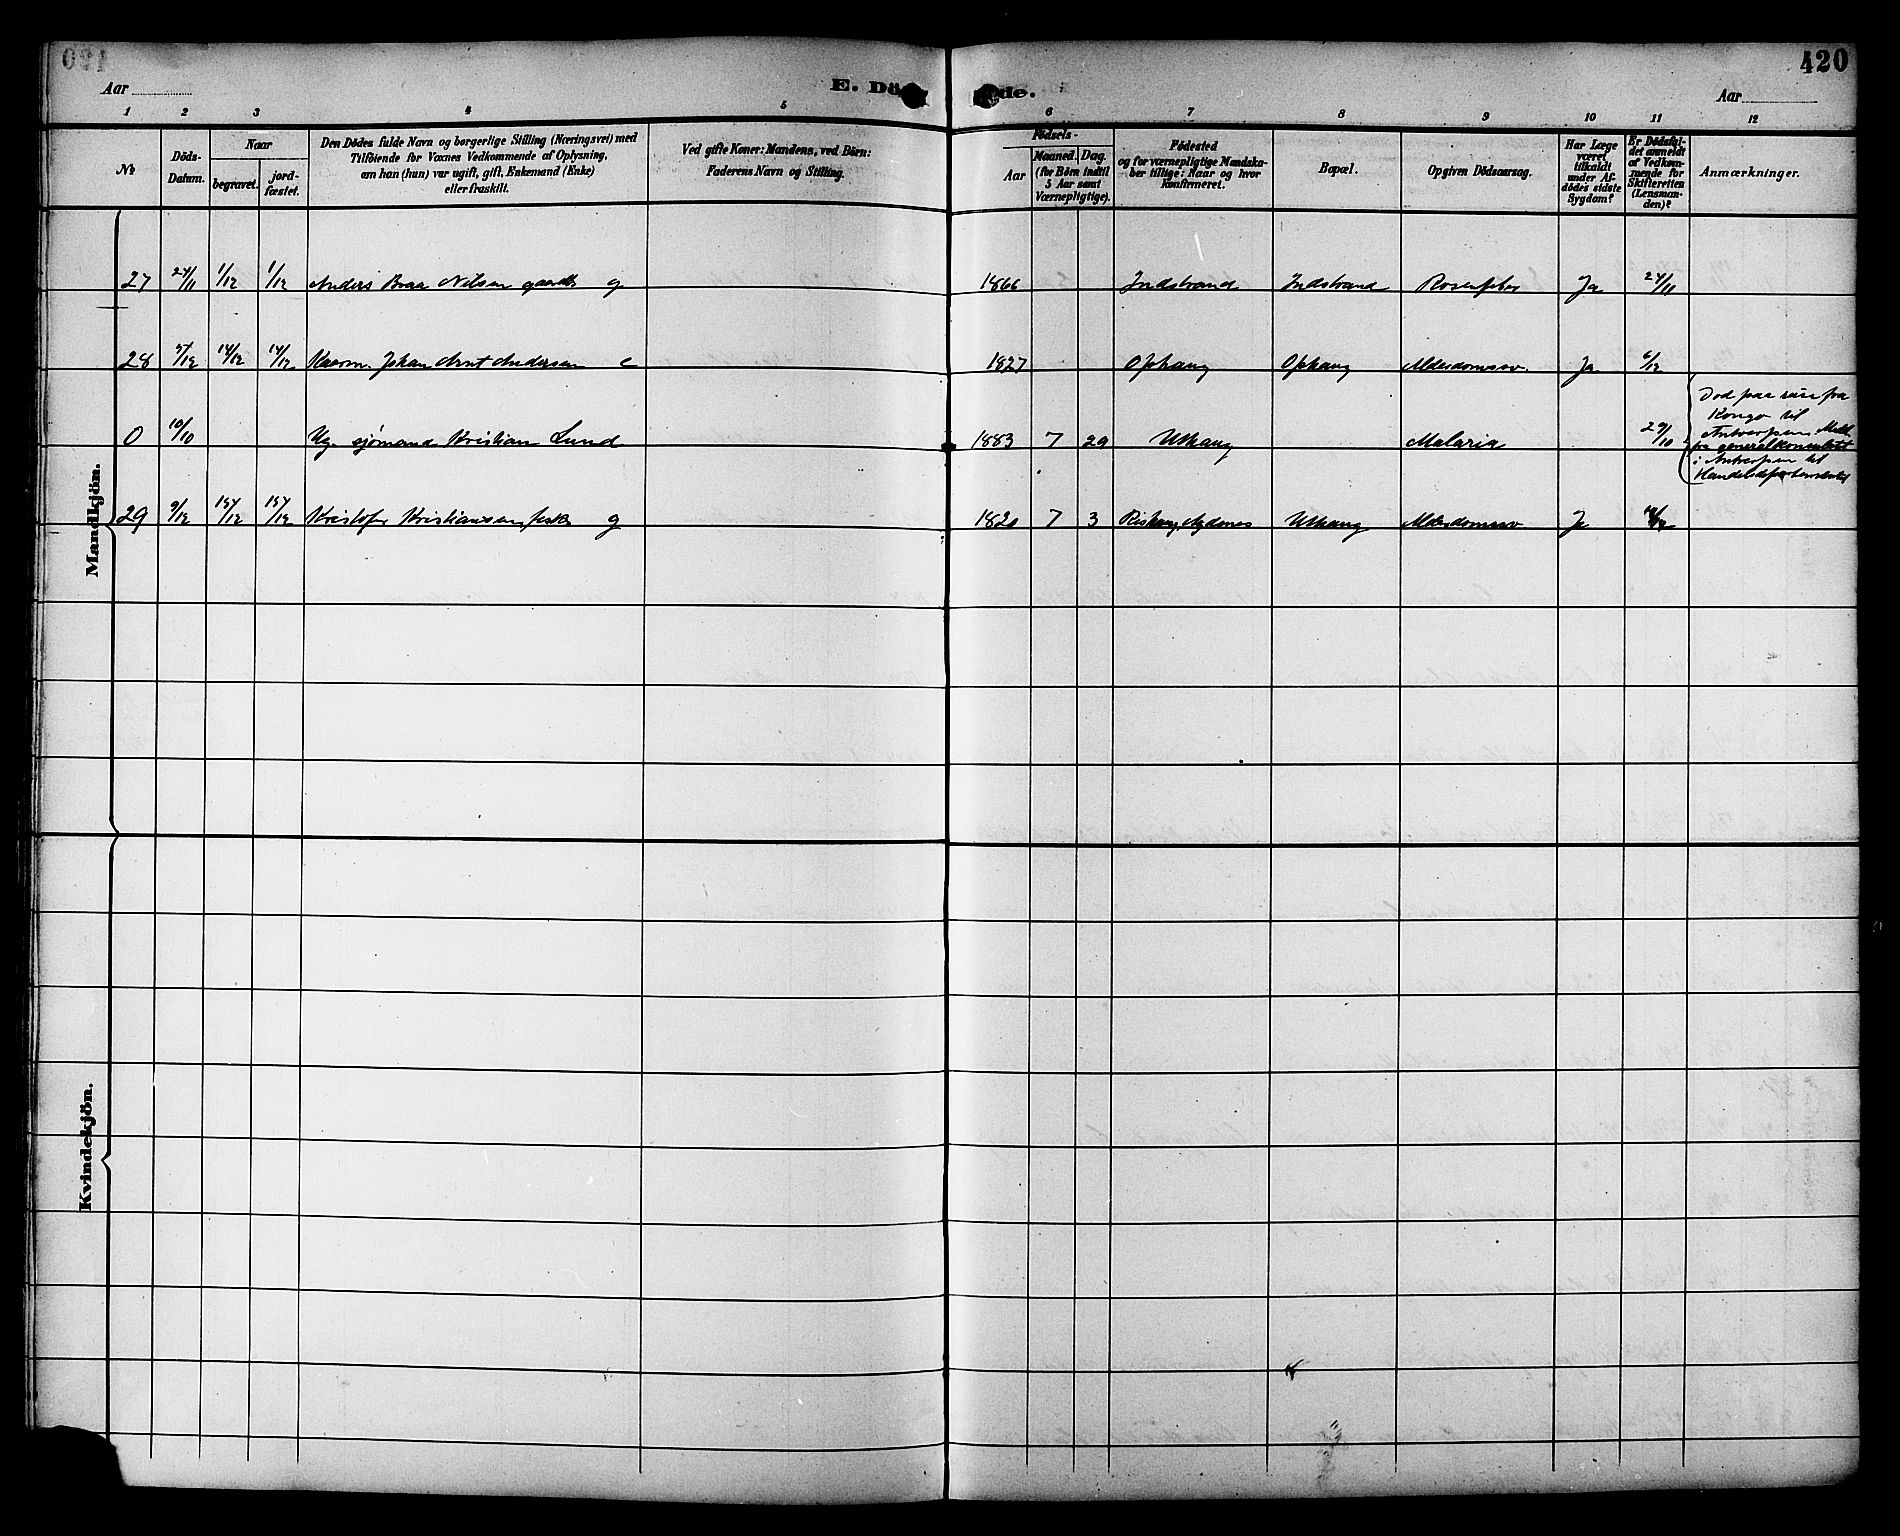 420
E. Döde.
Aar
Aar
1 2 3 4 5 6 7 8 9 10 11 12
No
Döds-Datum.
Naar
begravet.
jord-fæstet.
Den Dödes fulde Navn og borgerlige Stilling (Næringsvei) med
Tilföiende for Voxnes Vedkommende af Oplysning,
om han (hun) var ugift, gift, Enkemand (Enke)
eller fraskilt.
Ved gifte Koner: Mandens, ved Börn:
Faderens Navn og Stilling.
Födsels-
Aar
Maaned. Dag.
(for Börn indtil
5 Aar samt
Værnepligtige).
Födested
og for værnepligtige Mandska-
ber tillige: Naar og hvor
konfirmeret.
Bopæl.
Opgiven Dödsaarsag.
Har Læge
været
tilkaldt
under Af-
dödes sidste
Sygdom?
Er Dödsfal-
det anmeldt
af Vedkom-
mende for
Skifteretten
(Lensman-
den)?
Anmærkninger.
Mandkjön.
27 24/11 1/12 1/12 Anders Braa Nilsen gaardb g 1866 Indstrand Indstrand Rosenfeber Ja 27/11
28 5/12 14/12 14/12 Kaarm. Johan Arnt Andersen e 1827 Ophaug Ophaug Alderdomssv. Ja 6/12
0 10/10 Ug. sjömand Kristian Lund 1883 7 29 Uthaug Malaria 29/10
Död paa reise fra
Kongo til
Antwerpen Meldt
fra generalkonsulatet
i Antwerpen til
Handelsdepartementet
29 9/12 15/12 15/12 Kristofer Kristiansen fisker g 1820 7 3 Agdenes Uthaug Alderdomssv Ja
Kvindekjön.